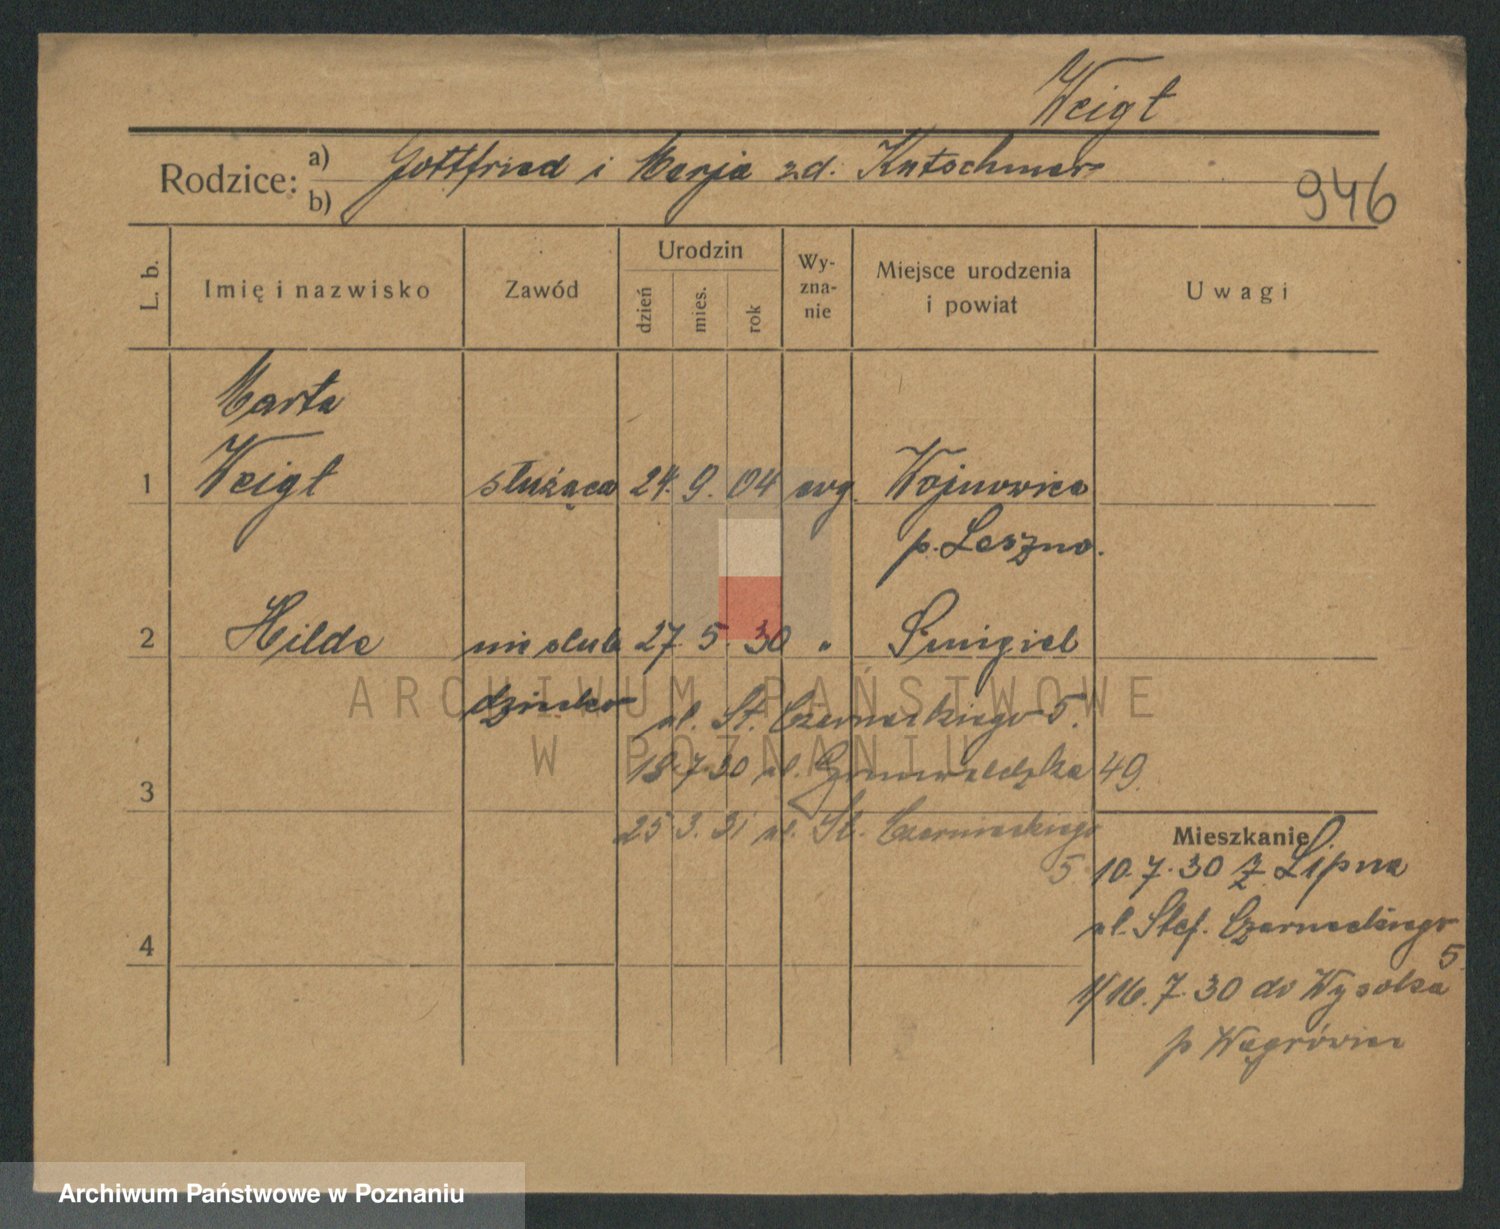 Weigt
Rodzice: a) Gottfried i Marja zd. Kutschner
b)
946
L. b. Imię i nazwisko Zawód Urodzin dzień mies. rok Wyznanie Miejsce urodzenia i powiat Uwagi
Marta
1 Weigt służąca 24. 9. 04 ewg. Wojnowice
p. Leszno.
2 Hilde nieślub 27. 5. 30 " Śmigiel
dziecko ul. St. Czarneckiego 5.
18.7.30 ul. Grunwaldzka 49.
3
25 3. 31 ul. St. Czarnieckiego
5
Mieszkanie
10.7.30 z Lipna
ul. Stef. Czarneckiego
5
4
1/16.7.30 do Wysoka
p Wągrówiec
ARCHIWUM PAŃSTWOWE
W POZNANIU
Archiwum Państwowe w Poznaniu